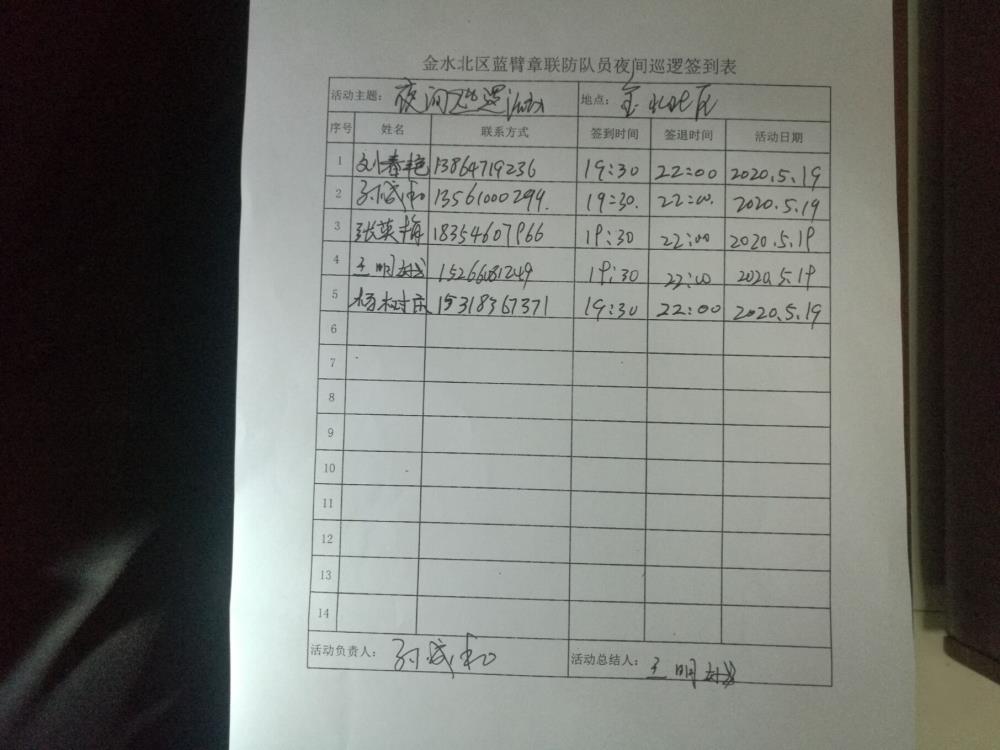 金水北区蓝臂章联防队员夜间巡逻签到表
活动主题： 夜间巡逻活动 地点： 金水北区
序号 姓名 联系方式 签到时间 签退时间 活动日期
1 刘春艳 13864719236 19:30 22:00 2020.5.19
2 孙成和 13561000294. 19:30. 22:00. 2020.5.19
3 张英梅 18354607966 19:30 22:00 2020.5.19
4 王明 15266081249 19:30 22:00 2020.5.19
5 杨树 15318367371 19:30 22:00 2020.5.19
6
7
8
9
10
11
12
13
14
活动负责人： 孙成和 活动总结人： 王明